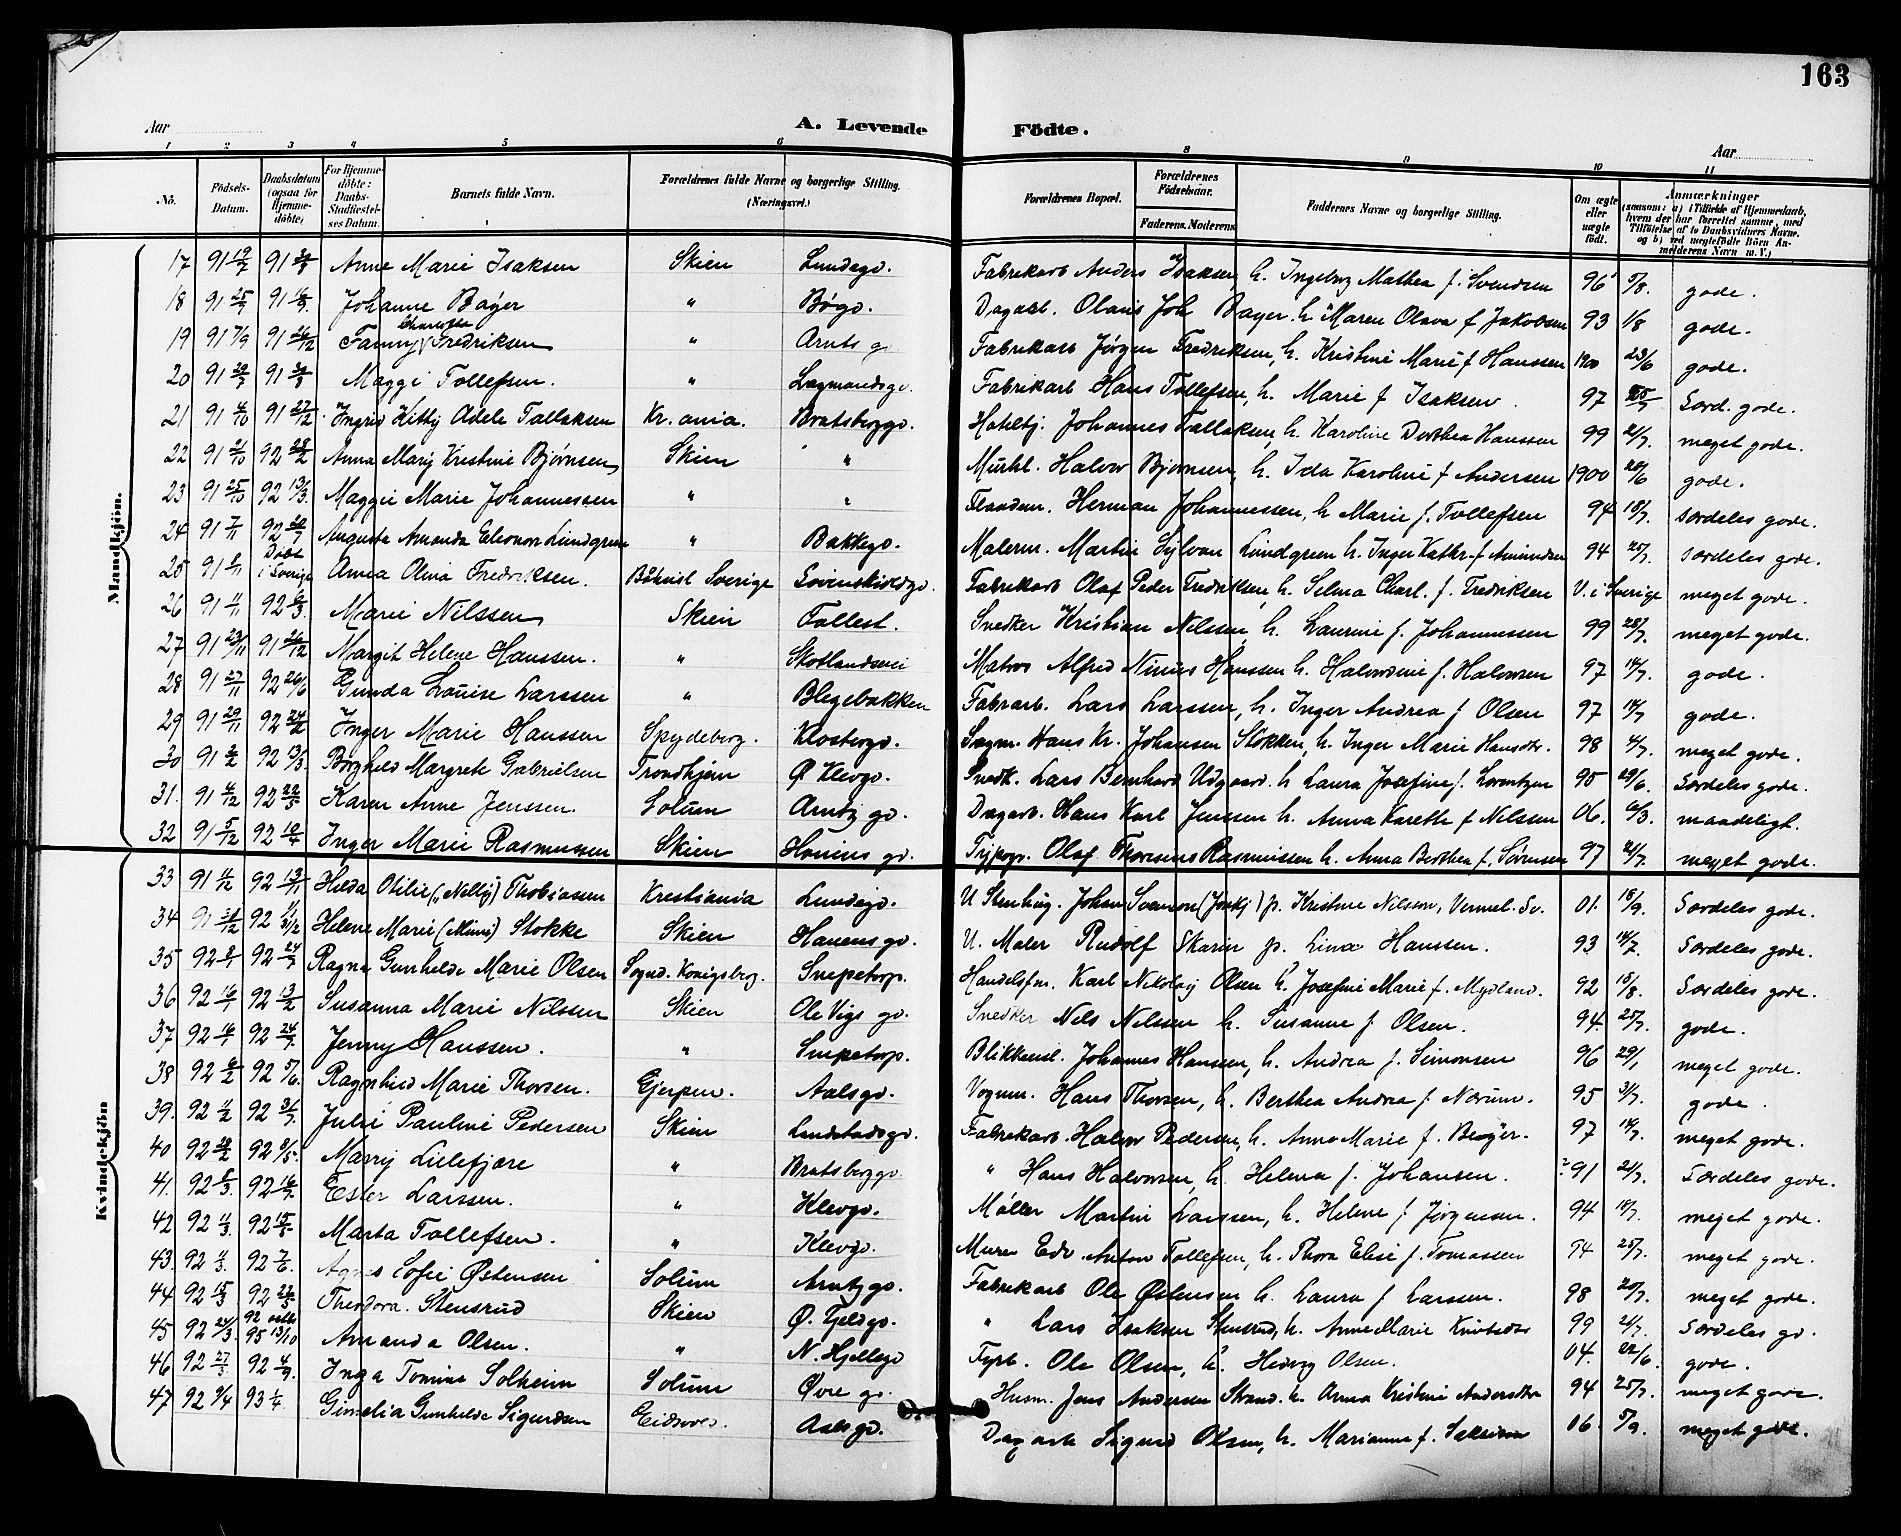 163
Aar
A. Levende Födte.
Aar
1 2 3 4 5 6 8 9 10 11
Nö.
Födsels-Datum.
Daabsdatum (ogsaa for Hjemmedöbte)
For Hjemmedöbte: Daabs-Stadfæstelses Datum
Barnets fulde Navn.
Forældrenes fulde Navne og borgerlige Stilling. (Næringsvei.)
Forældrenes Bopæl.
Forældrenes Födselsaar.
Faderens. Moderens.
Faddernes Navne og borgerlige Stilling.
Om ægte eller uægte födt.
Anmærkninger (saasom: a) i Tilfælde af Hjemmedaab, hvem der har forrettet samme, med Tilföielse af to Daabsvidners Navne. og b) ved uægtefödte Börn Anmelderens Navn m. V.)
Mandkjön.
17 91 91 Anne Marie Isaksen Skien Lundegd. Fabrikarb Anders Isaksen, h. Ingeborg Mathea f. Svendsen 96 5/8. gode.
18 91 25 91 Johanne Bayer " Bøgd. Dagarb. Olaus Joh Bayer. h. Maren Olava f Jakobsen 93 1/8 gode.
19 91 7/9 91 26/12 Fanny Charlotte Fredriksen " Arnts g Fabrikarb Jørgen Fredriksen, h. Kristine Marie f Hanssen 1900 23/6 gode.
20 91 91 Maggi Tollefsen. " Lagmandsgd. Fabrikarb Hans Tollefsen, h. Marie f Isaksen. 97 Særd. gode.
21 91 4/10 91 27/12 Ingrid Kitty Adele Tallaksen Kr.ania. Bratsberggd. Hotelbj. Johannes Tallaksen h. Karoline Dorthea Hanssen 99 21/7. meget gode.
22 91 21/10 92 28/2 Anna Mary Kristine Bjørnsen Skien " Murhl. Halvor Bjørnsen, h. Ida Karoline f Andersen 1900 28/6 gode.
23 91 25/10 92 13/3. Maggie Marie Johannessen " " Herman Johannessen, h Marie f. Tollefsen 94 18/7. særdeles gode.
24 91 7/11 92 Auguste Amanda Eleonora Lundgren " Bakkegd. Malerm. Martin Sylvan Lundgreen h. Inger Kathr. f. Amundsen 94 25/7. særdeles gode.
25 91 Døbt i Sverige Anna Olivia Fredriksen. Båhusl Sverige Fabrikarb Olaf Peder Fredriksen, h. Selma Charl. f. Fredriksen V. i Sverige meget gode.
26 91 11/11 92 6/3 Marie Nilssen Skien Follest. Snedker Kristian Nilssen, h. Laurine f. Johannessen 99 28/7. meget gode.
27 91 23/11 91 26/12 Margit Helene Hanssen. " Skotlandsvei Matros Alfred Ninius Hanssen h. Halvordine f. Halvorsen 97 14/7. gode.
28 91 27/11 92 26/6 Gunda Louise Larssen " Blegebakken Fabrarb. Lars Larssen, h. Inger Andrea f Olsen 97 14/7 gode.
29 91 29/11 92 24/2 Inger Marie Hanssen Spydeberg. Klostergd. Sagm. Hans Kr. Johansen Stokken, h. Inger Marie Hansdtr. 98 4/7. meget gode.
30 91 92 13/3. Borghild Margrete Gabrielsen Trondhjem Ø Klevgd. Snedk. Lars Bernhard Udgaard. h Laura Josefine f. Lorentzen 95 29/6. særdeles gode.
31. 91 4/12 92 22/5 Karen Anne Jenssen. Solum Arntz gd. Dagarb. Hans Karl Jenssen h. Anna Karethe f Nilssen 06. 6/3. maadeligt.
32 91 5/12 92 10/4 Inger Marie Rasmussen Skien Hanens gd. Typogr. Olaf Thoresius Rasmussen h. Anna Berthea f. Sørensen 97 21/7. meget gode.
Kvindekjön
33 91 92 13/11 Hilda Otilie (Nelly) Thobiassen Kristiania Lundegd. U Stenhug. Johan Svensson (Jonkj) p. Kristine Nilsson, Vermel. Sv. 01. 18/9. særdeles gode.
34 91 92 Helene Marie (Mimi) Stokke Skien Hanens gd. U. Maler Rudolf Skarin p. Lina Hanssen. 93 14/7. særdeles gode.
35 92 8/1 92 24/7 Ragna Gunhilde Marie Olsen Sognd. Kongsberg. Snipetorp. Handelsfm. Karl Nikolay Olsen h. Josefine Marie f. Mydland. 92 18/8. særdeles gode.
36 92 16/1 92 13/2 Susanna Marie Nilssen Skien Ole Vigs gd. Snedker Nils Nilssen h. Susanne f Olsen. 94. 25/7. gode.
37 92 16/1 92 24/7. Jenny Hanssen. " Snipetorp. Blikkensl. Johannes Hanssen, h. Andrea f. Simonsen 96 29/1 meget gode.
38 92 6/2 92 5/6. Ragnhild Marie Thorsen. Gjerpen. Aalsgd. Vognm. Hans Thorsen, h. Berthea Andrea f. Nærum. 95 31/7. gode.
39. 92 11/2 92 31/7. Julie Pauline Pedersen Skien Lundstadsgd. Fabrikarb. Halvor Pedersen, h. Anne Marie f. Bayer. 97 14/7. meget gode.
40 92 28/2 92 8/5. Marry Lillefjære " Bratsberggd. " Hans Halvorsen, h. Helena f. Johansen. ? 91 21/7. særdeles gode.
41. 92 8/3. 92 16/7. Ester Larssen. " Klevgd. Møller Martin Larssen, h. Helene f Jørgensen. 94 18/7. meget gode.
42 92 11/3 92 15/5 Marta Tollefsen. " Klevgd. Murer Edv. Anton Tollefsen, h. Thora Elise f. Tomassen 94 25/7. meget gode.
43. 92 11/3. 92 7/6. Agnes Sofie Østensen Solum Arntz gd. Fabrikarb Ole Østensen h. Laura f Larssen. 98 20/7. meget gode.
44 92 15/3 92 26/5 Theodora. Stensrud Skien Ø. Fjeldgd. " Lars Isaksen Stensrud, h. Anne Marie Knutsdtr 99 21/7. særdeles gd.
45 92 24/3 92 eller 95 13/10 Amanda Olsen. " N. Hjellegd Fyrb. Ole Olsen, h. Hedvig Olsen. 04. 22/6. gode.
46 92 27/3 92 4/9. Inga Tomine Solheim Solum Øvre gd. Husm. Jens Andersen Strand. h. Anna Kristine Andersdtr 94 25/7. meget gode.
47 92 9/4 93 1/4. Gunhilde Sigurdsen Eidsvold. Aalsgd. Dagarb Sigurd Olsen, h. Marianne f. 06. 5/9. meget gode.